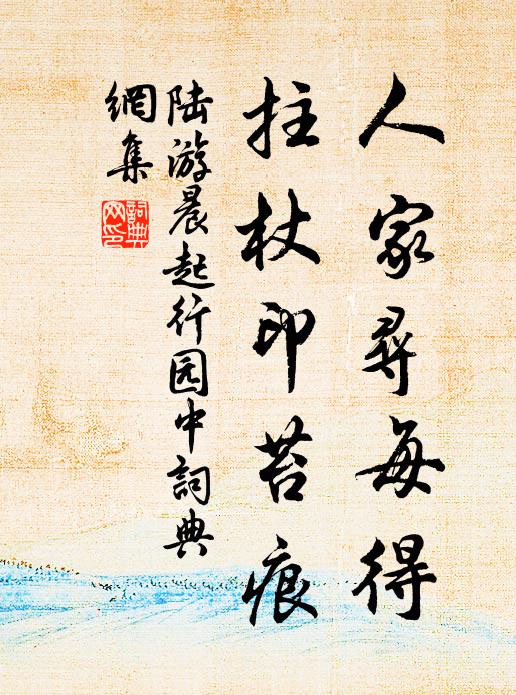 人家尋每得
拄杖印苔痕
陆游晨起行园中詞典
網集
詞典
网印